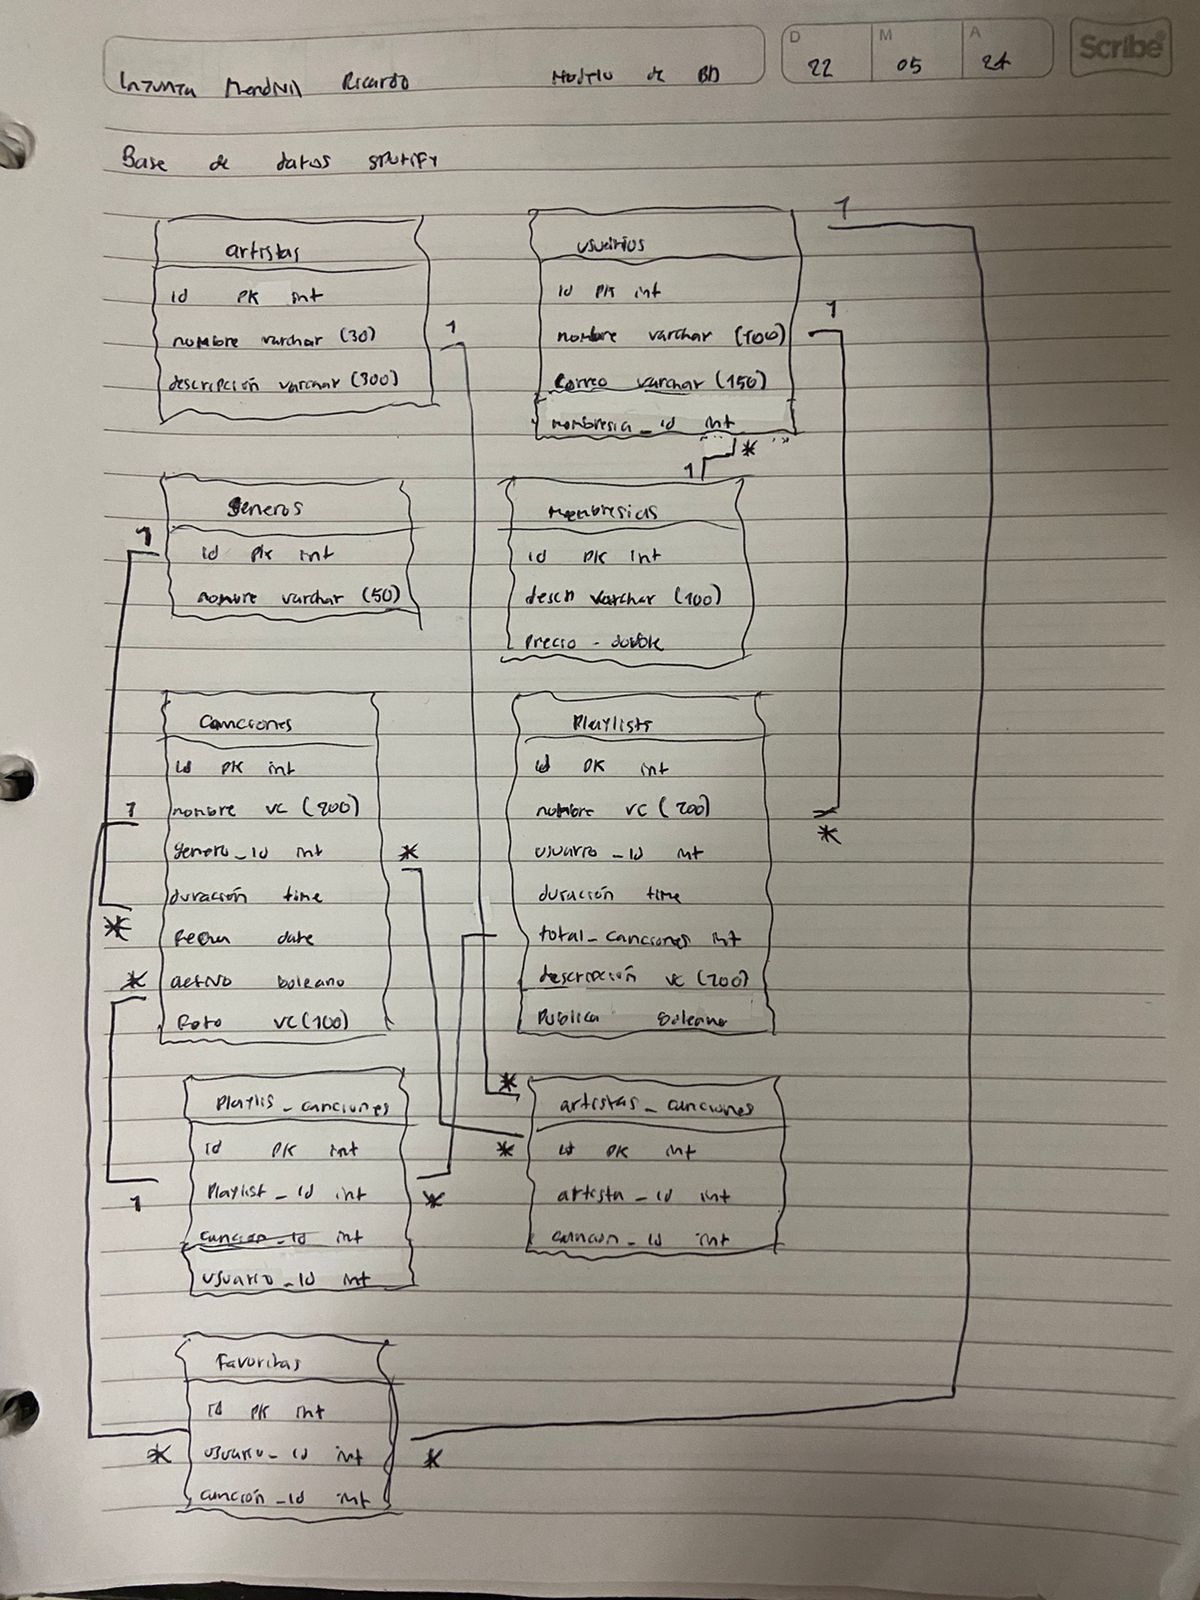 Ricardo
Modelo de BD
D 22 M 05 A 24
Scribe
Base de datos spotify
artistas
id PK int
nombre varchar (30)
descripción varchar (300)
1
usuarios
id PK int
nombre varchar (100)
correo varchar (150)
membresia_id int
1
1
*
1
generos
id pk int
nombre varchar (50)
1
membresias
id PK int
descn varchar (100)
precio - double
canciones
id PK int
nombre vc (200)
genero_id int
duración time
fecha date
activo boleano
foto vc (100)
1
*
*
*
Playlists
id PK int
nombre vc (200)
usuario_id int
duración time
total_canciones int
descripción vc (200)
Publica boleano
*
Playlis_canciones
id PK int
Playlist_id int
cancion_id int
usuario_id int
1
*
artistas_canciones
id PK int
artista_id int
cancion_id int
*
*
Favoritas
id PK int
usuario_id int
canción_id int
*
*